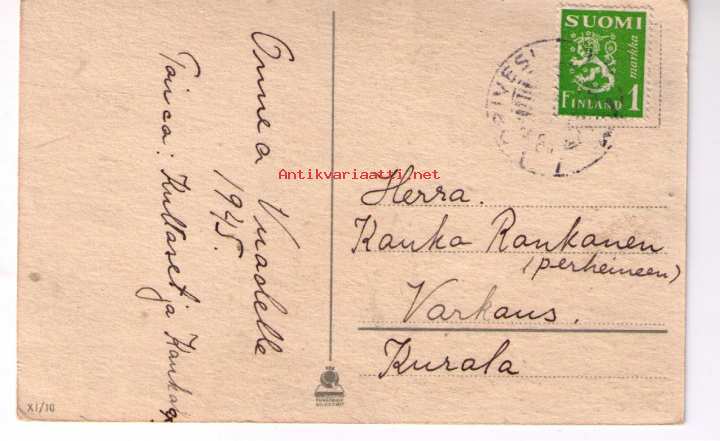 Onnea Vuodelle
1945.
Toivoo: Kultaset ja
SUOMI
markka
FINLAND 1
Antikvariaatti.net
Herra.
Kauko Rankanen
(perheineen)
Varkaus.
Kurala
XI/10